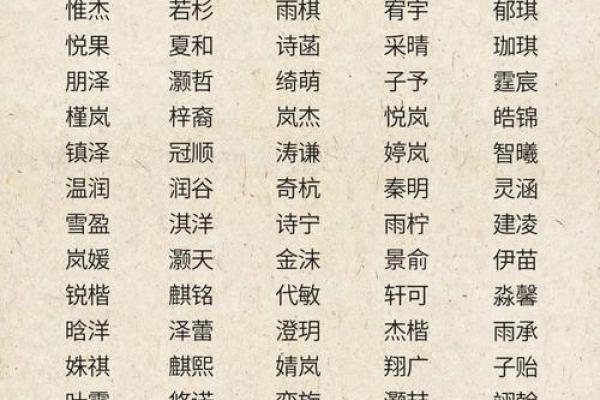 惟杰 若杉 雨棋 宥宇 郁琪
悦果 夏和 诗菡 采晴 珈琪
朋泽 灏哲 绮萌 子予 霆宸
槿岚 梓裔 岚杰 悦岚 皓锦
镇泽 冠顺 涛谦 婷岚 智曦
温润 润谷 奇杭 秦明 灵涵
雪盈 淇洋 诗宁 雨柠 建凌
岚媛 灏天 金沫 景俞 伊苗
锐楷 麒铭 代敏 轩可 淼馨
晗洋 泽蕾 澄玥 杰楷 雨承
姝祺 麒熙 婧岚 翔广 子贻